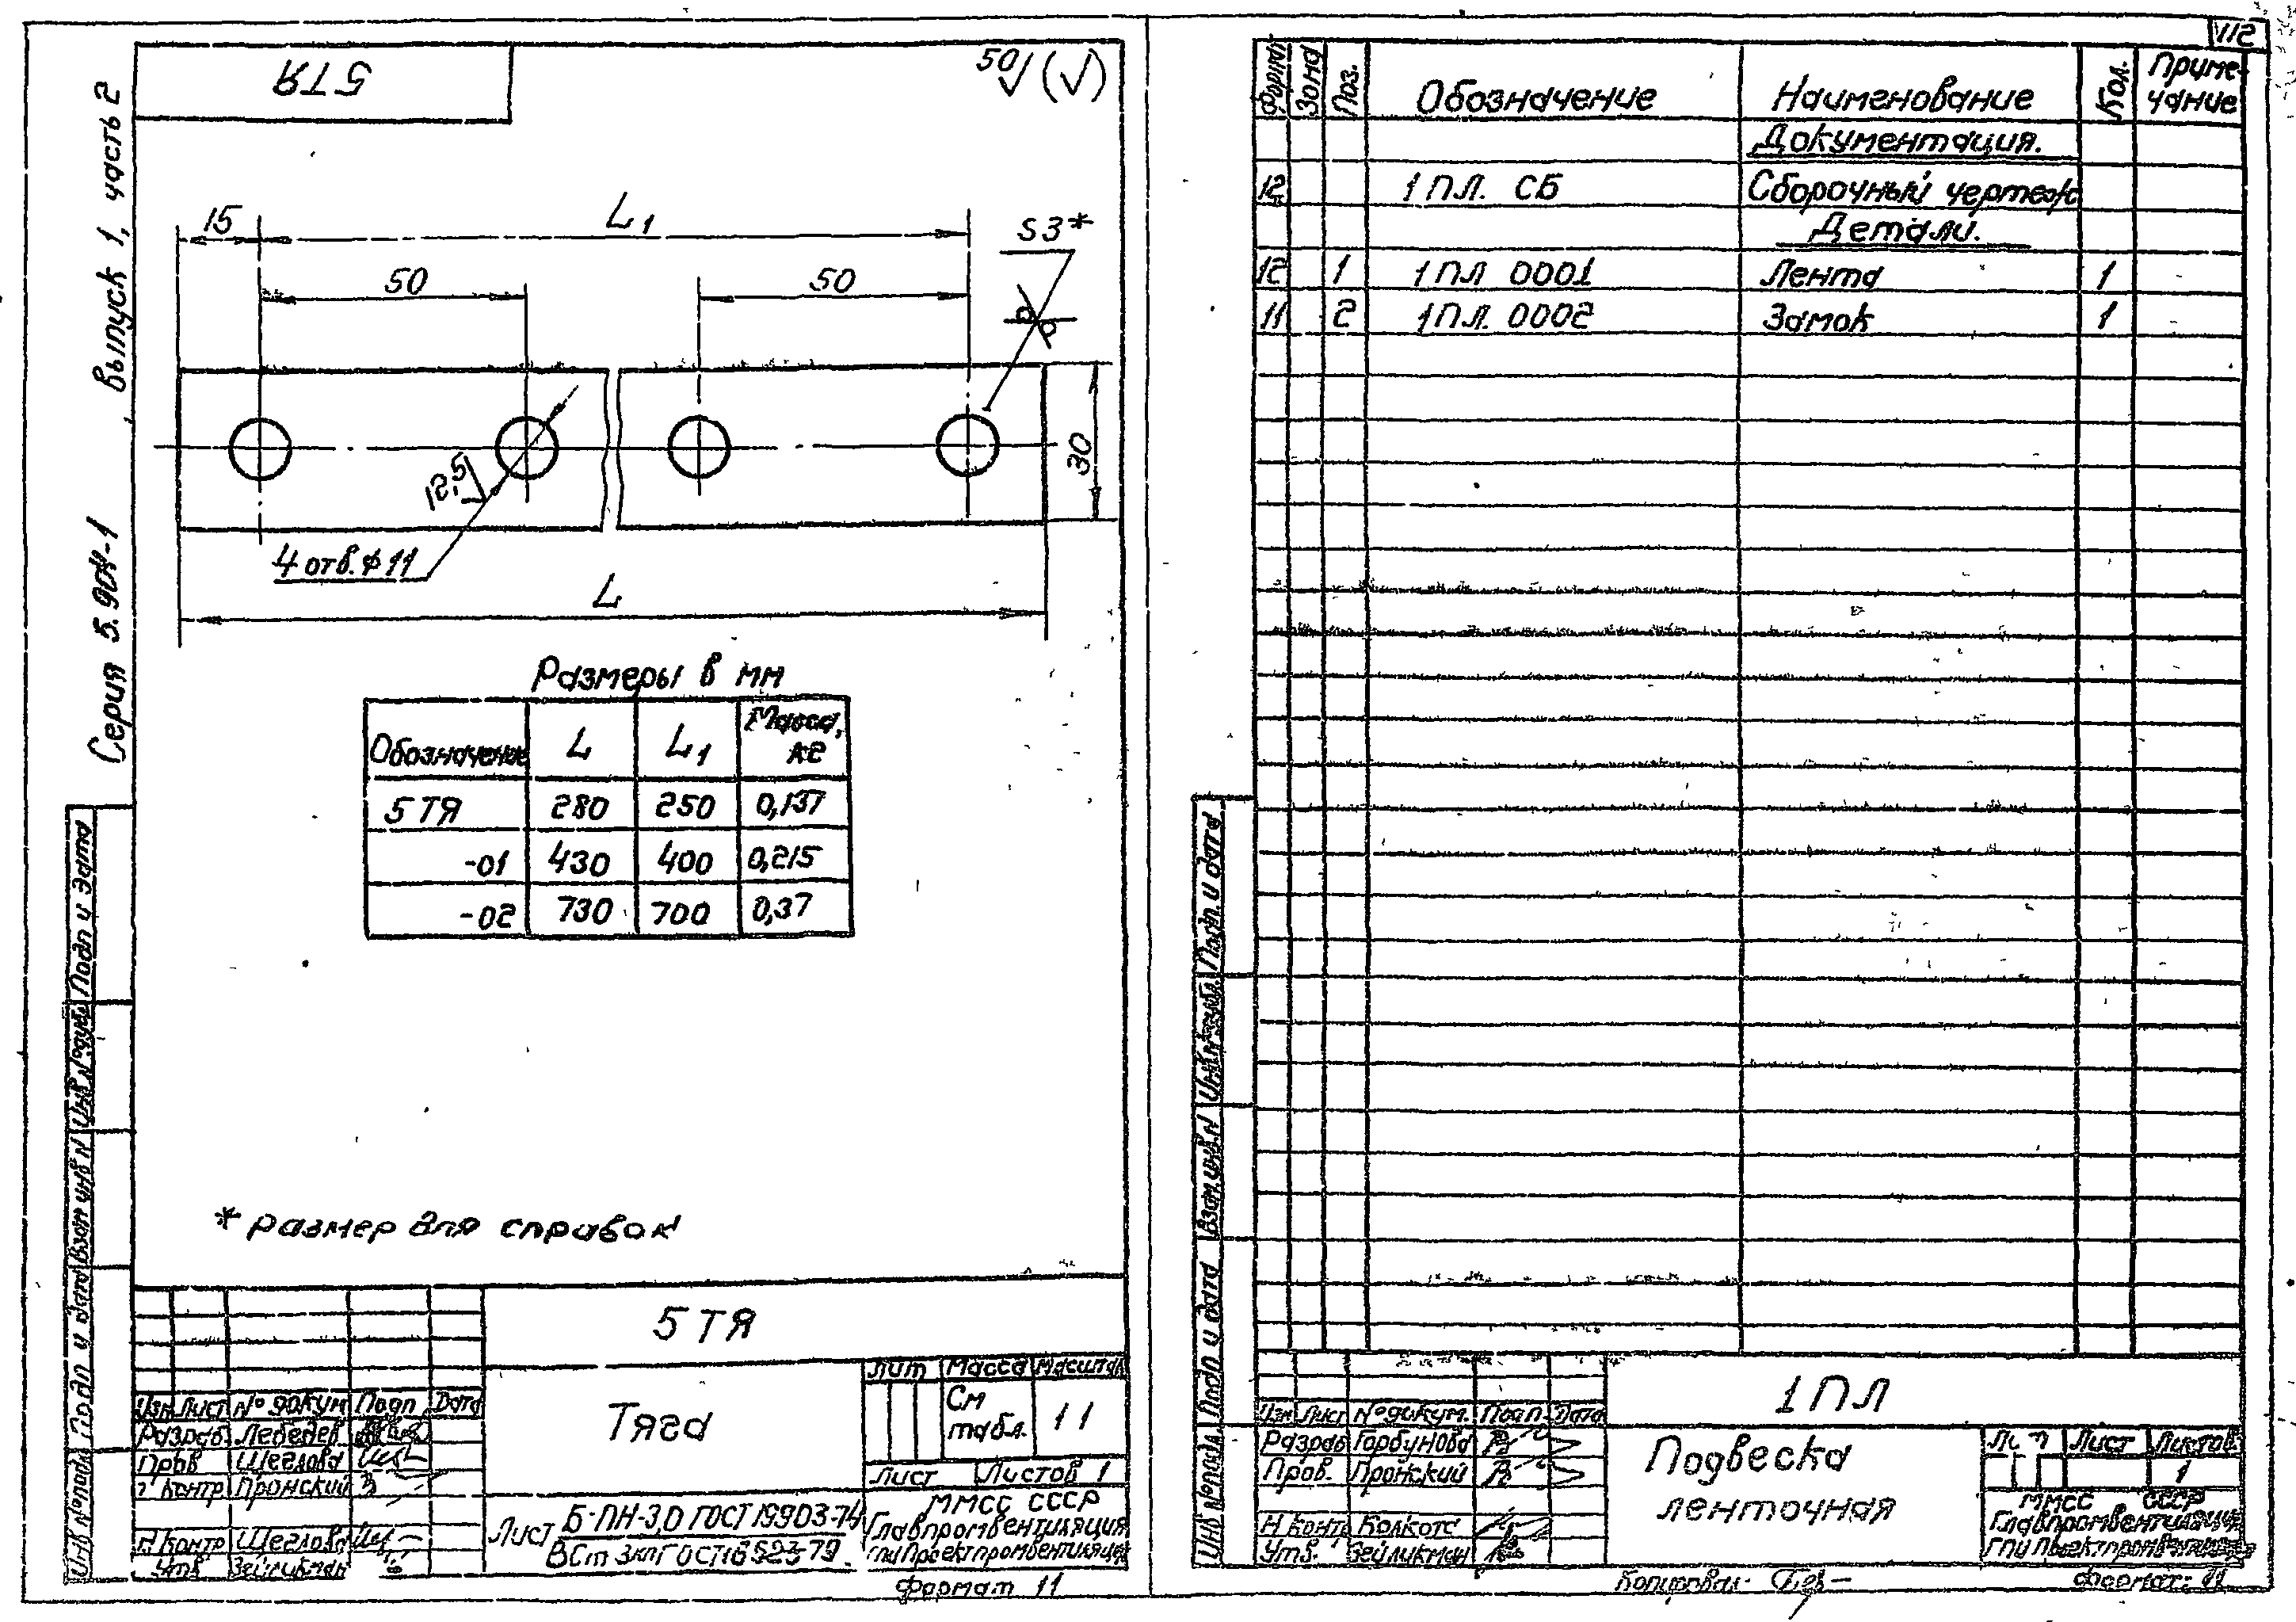 112
5ТЯ
50 (√)
Серия 5.904-1 выпуск 1, часть 2
15
L1
S3*
50
50
30
12,5
4 отв. ф 11
L
Размеры в мм
Обозначение L L1 Масса, кг
5 ТЯ 280 250 0,137
-01 430 400 0,215
-02 730 700 0,37
* размер для справок
Подп и дата
Инв № дубл
Взам инв N
Подп и дата
Инв № подл
5 ТЯ
Тяга
Лит Масса Масштаб
См табл. 1 1
Лист Листов 1
Изм Лист № докум Подп Дата
Разраб. Лебедев
Пров Щеглова
Т контр Пронский
Н Контр Щеглова
Утв Зейликман
Лист Б-ПН-3,0 ГОСТ 19903-74
ВСт 3кп ГОСТ 16523-79.
ММСС СССР
Главпромвентиляция
ГПИ Проектпромвентиляция
Формат 11
Формат Зона Поз. Обозначение Наименование Кол. Приме-
чание
Документация.
12 1 ПЛ. СБ Сборочный чертеж
Детали.
12 1 1 ПЛ 0001 Лента 1
11 2 1 ПЛ. 0002 Замок 1
Подп. и дата
Инв № дубл.
Взам. инв. N
Подп и дата
Инв № подл.
1 ПЛ
Подвеска
ленточная
Изм Лист № докум. Подп. Дата
Разраб Горбунова
Пров. Пронский
Н контр
Утв. Зейликман
Лит Лист Листов
1
ММСС СССР
Главпромвентиляция
Копировал.
Формат: 11